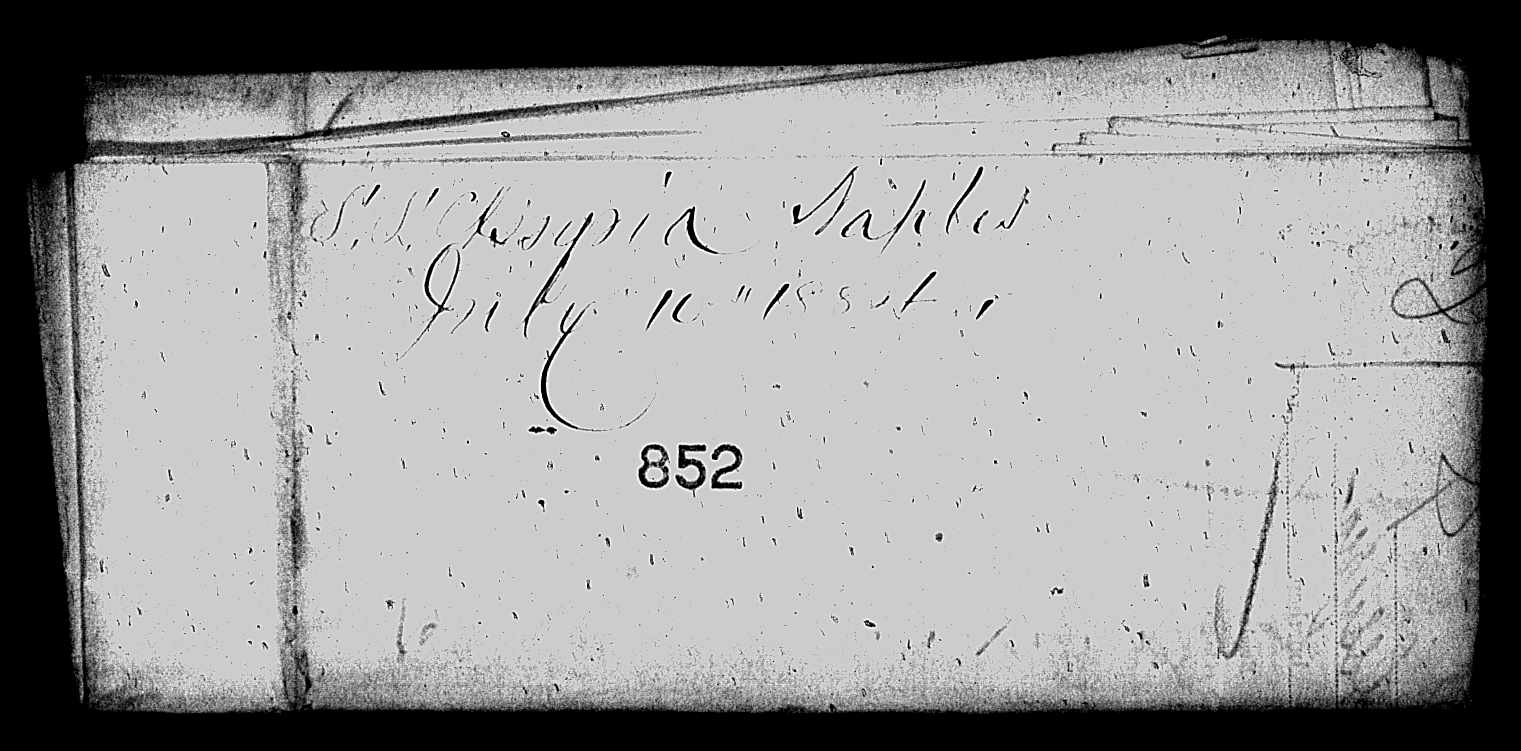 S.S. Olympia Naples
July 10" 1884
852